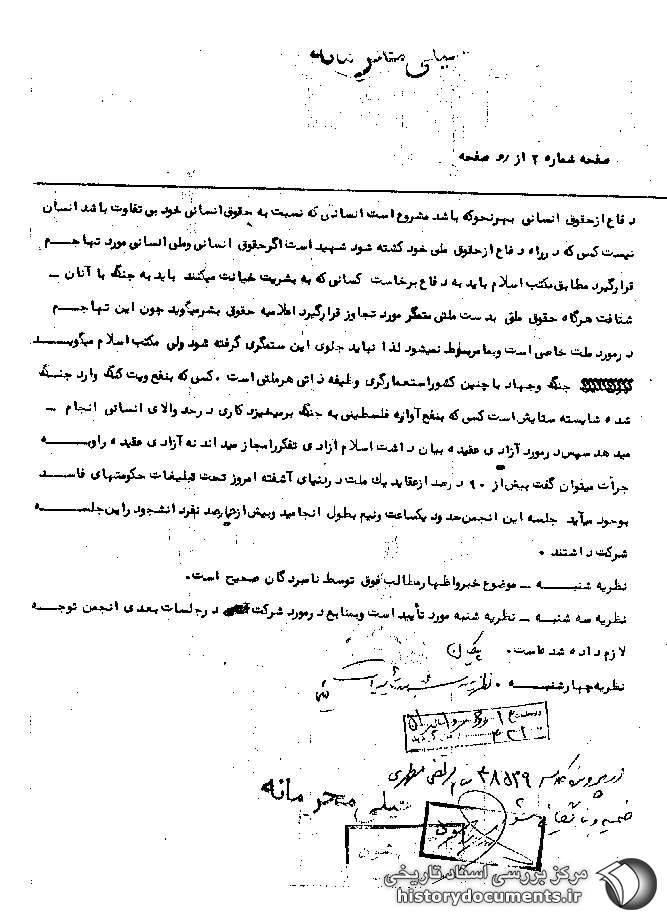 خیلی محرمانه
صفحه شماره ۲ از دو صفحه
دفاع ازحقوق انسانی بهرنحوکه باشد مشروع است انسانی که نسبت به حقوق انسانی خود بی تفاوت باشد انسان
نیست کسی که درراه دفاع ازحقوق ملی خود کشته شود شهید است اگرحقوق انسانی وملی انسانی مورد تهاجم
قرارگیرد مطابق مکتب اسلام باید به دفاع برخاست کسانی که به بشریت خیانت میکنند باید به جنگ با آنان ـ
شتافت هرگاه حقوق ملتی بدست ملتی ستمگر مورد تجاوز قرارگیرد اعلامیه حقوق بشرمیگوید چون این تهاجم
درمورد ملت خاصی است وبمامربوط نمیشود لذا نباید جلوی این ستمگری گرفته شود ولی مکتب اسلام میگوید
جنگ وجهاد باچنین کشوراستعمارگری وظیفه ذاتی هرملتی است . کسی که بنفع ویت کنگ وارد جنگ
شده شایسته ستایش است کسی که بنفع آواره فلسطینی به جنگ برمیخیزد کاری درحد والای انسانی انجام ـ
میدهد سپس درمورد آزادی عقیده بیان داشت اسلام آزادی تفکررامجاز میداند نه آزادی عقیده راوبه
جرأت میتوان گفت بیش از ۹۰ درصد ازعقاید یك ملت دردنیای آشفته امروز تحت تبلیغات حکومتهای فاسد
بوجود میآید جلسه این انجمن حدود یکساعت ونیم بطول انجامید وبیش ازچهارصد نفردانشجود راین جلسه
شرکت داشتند .
نظریه شنبه ـ موضوع خبرواظهارمطالب فوق توسط نامبردگان صحیح است.
نظریه سه شنبه ـ نظریه شنبه مورد تأیید است وبمنابع درمورد شرکت درجلسات بعدی انجمن توجه
لازم داده شده است.
نظریه چهارشنبه . نظریه سه شنبه
در پرونده کلاسه ۴۸۵۲۹ بنام مرتضی مطهری
ضمیمه و بایگانی شود
خیلی محرمانه
شود
مرکز بررسی اسناد تاریخی
historydocuments.ir